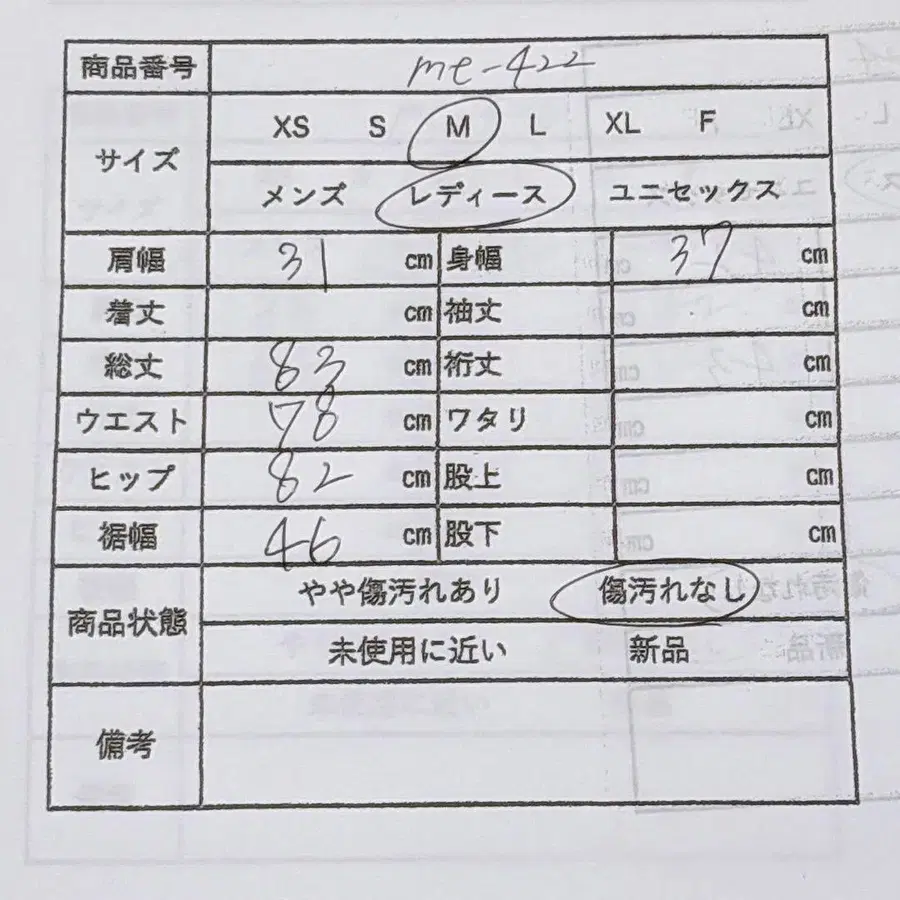 商品番号 me-422
サイズ XS S M L XL F
メンズ レディース ユニセックス
肩幅 31 cm 身幅 37 cm
着丈 cm 袖丈 cm
総丈 83 cm 裄丈 cm
ウエスト 78 cm ワタリ cm
ヒップ 82 cm 股上 cm
裾幅 46 cm 股下 cm
商品状態 やや傷汚れあり 傷汚れなし
未使用に近い 新品
備考